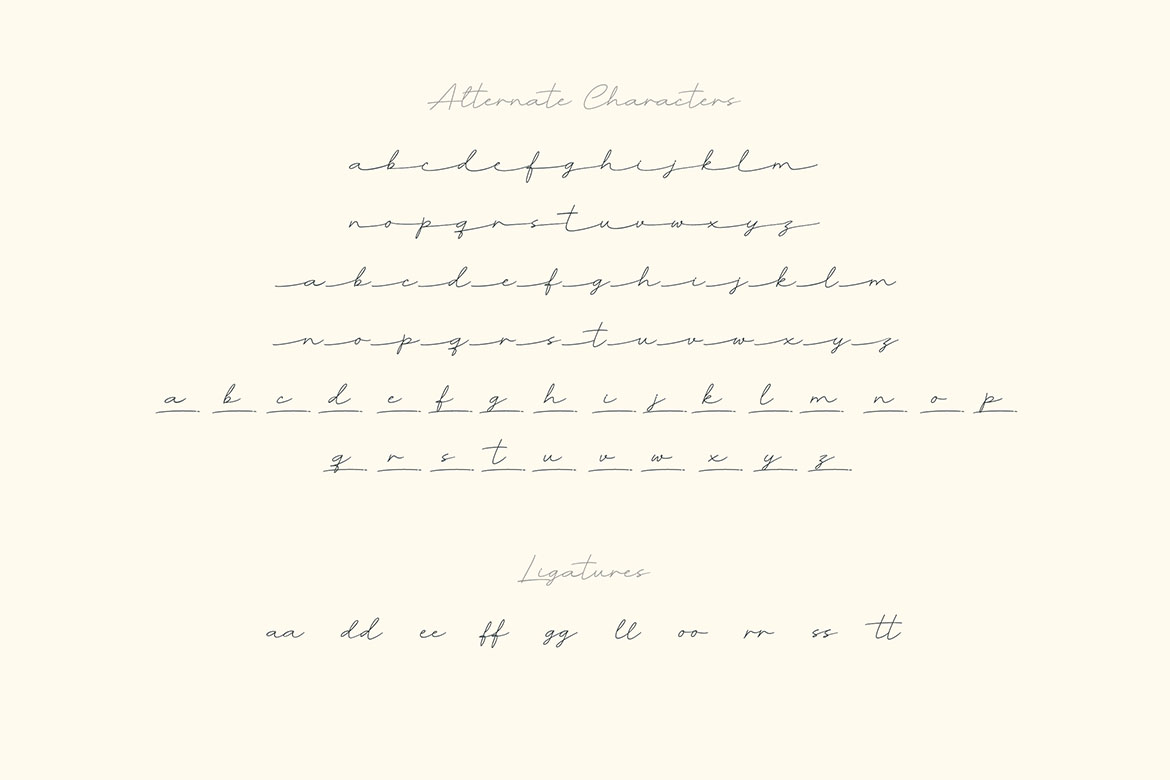 Alternate Characters
abcdefghijklm
nopqrstuvwxyz
abcdefghijklm
nopqrstuvwxyz
a b c d e f g h i j k l m n o p
q r s t u v w x y z
Ligatures
aa dd ee ff gg ll oo rr ss tt